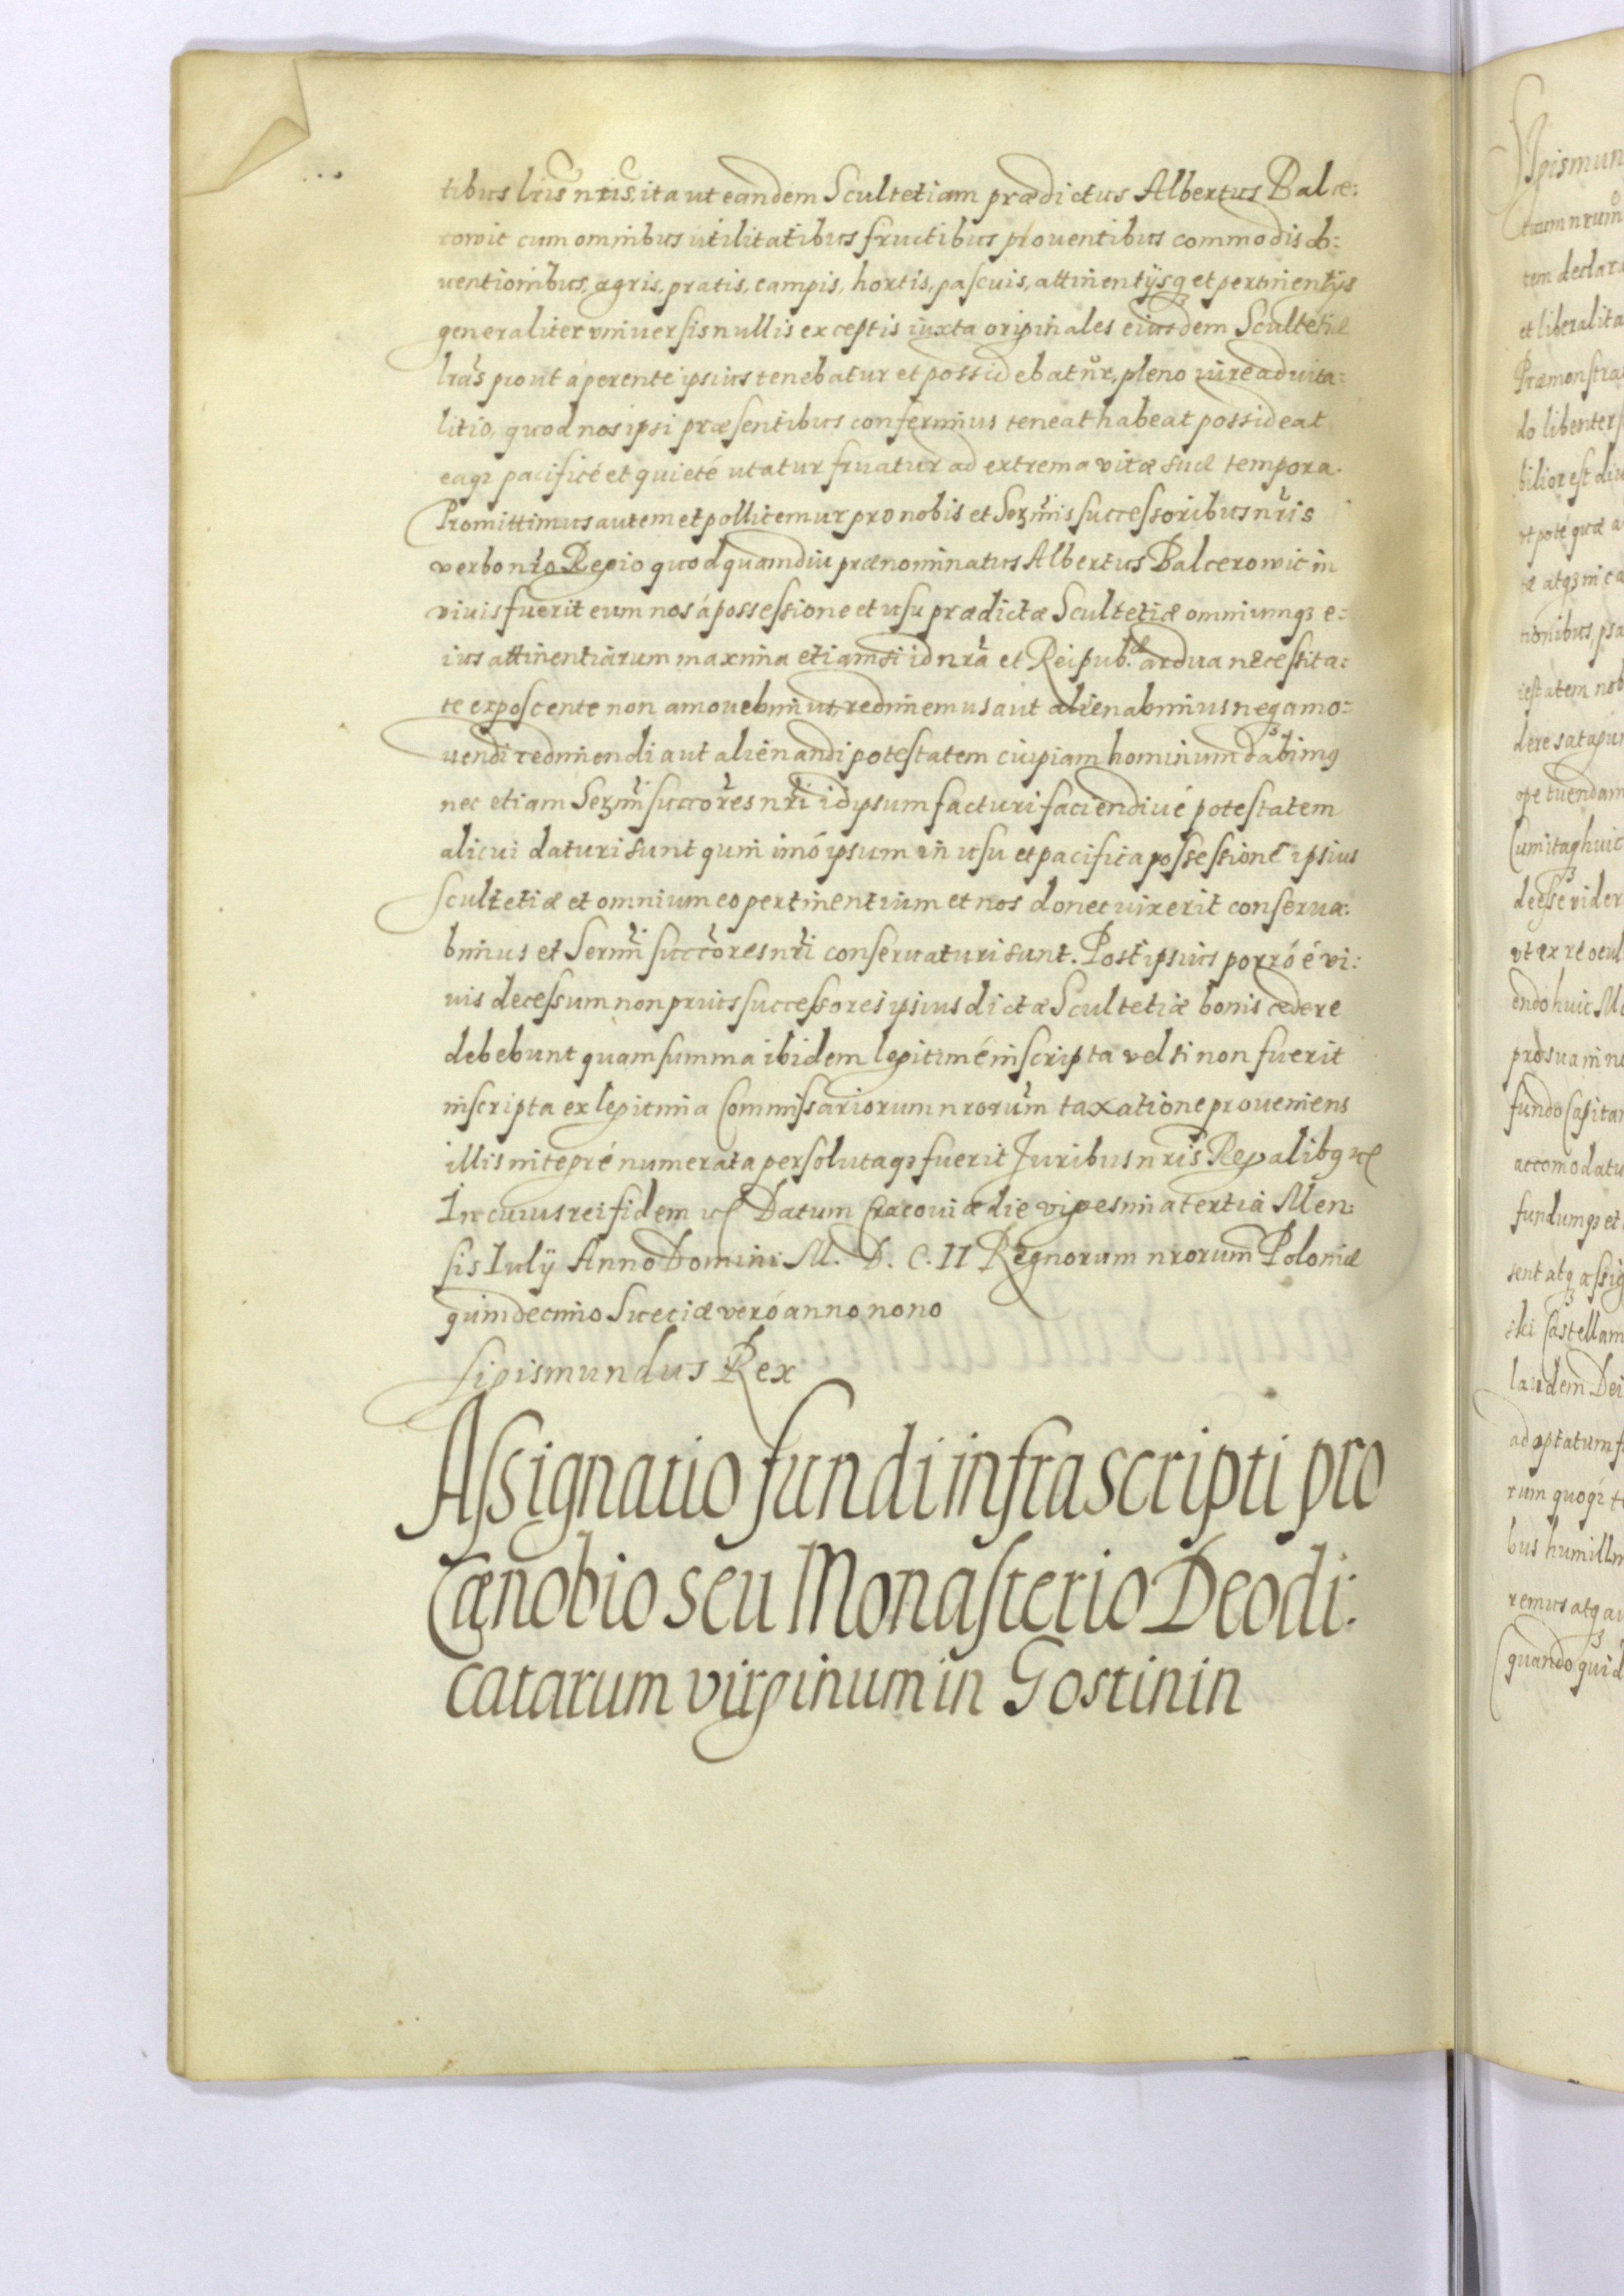 tibus lris nris, ita ut eandem Scultetiam prædictus Albertus Balce:
rowic cum omnibus utilitatibus fructibus prouentibus commodis ob:
uentionibus, agris, pratis, campis, hortis, pascuis, attinentijsq et pertinentijs
generaliter vniuersis nullis exceptis iuxta originales eiusdem Scultetiæ
lras prout a perente ipsius tenebatur et possidebatur, pleno iure aduita:
litio, quod nos ipsi præsentibus conferimus teneat habeat possideat
eaqz pacificé et quieté utatur fruatur ad extrema vitæ suæ tempora.
Promittimus autem et pollicemur pro nobis et Serzmis successoribus nris
verbo nro Regio quod quamdiu prænominatus Albertus Balcerowic in
viuis fuerit eum nos á possessione et usu prædictæ Scultetiæ omniumqz e:
ius attinentiarum maxima etiamsi id nra et Reipub.cæ ardua necessita:
te exposcente non amouebimus, redimemus aut alienabimus neqz amo:
uendi redimendi aut alienandi potestatem cuipiam hominum dabimus
nec etiam Serzmi succores nri id ipsum facturi faciendiué potestatem
alicui daturi sunt quin imó ipsum in usu et pacifica possessione ipsius
Scultetiæ et omnium eo pertinentium et nos donec uixerit conserua:
bimus et Sermi succores nri conseruaturi sunt. Post ipsius porró é vi:
uis decessum non prius successores ipsius dictæ Scultetiæ bonis cedere
debebunt quam summa ibidem legitimé inscripta vel si non fuerit
inscripta ex legitima Commissariorum nrorum taxatione proueniens
illis integré numerata persolutaqz fuerit Juribus nris Regalibq etc
In cuius rei fidem etc Datum Cracouiæ die vigesima tertia Men:
sis Iulij Anno Domini M. D. C. II Regnorum nrorum Poloniæ
quindecimo Sueciæ veró anno nono
Sigismundus Rex
Assignatio fundi infrascripti pro
Cænobio seu Monasterio Deo di:
catarum virginum in Gostinin